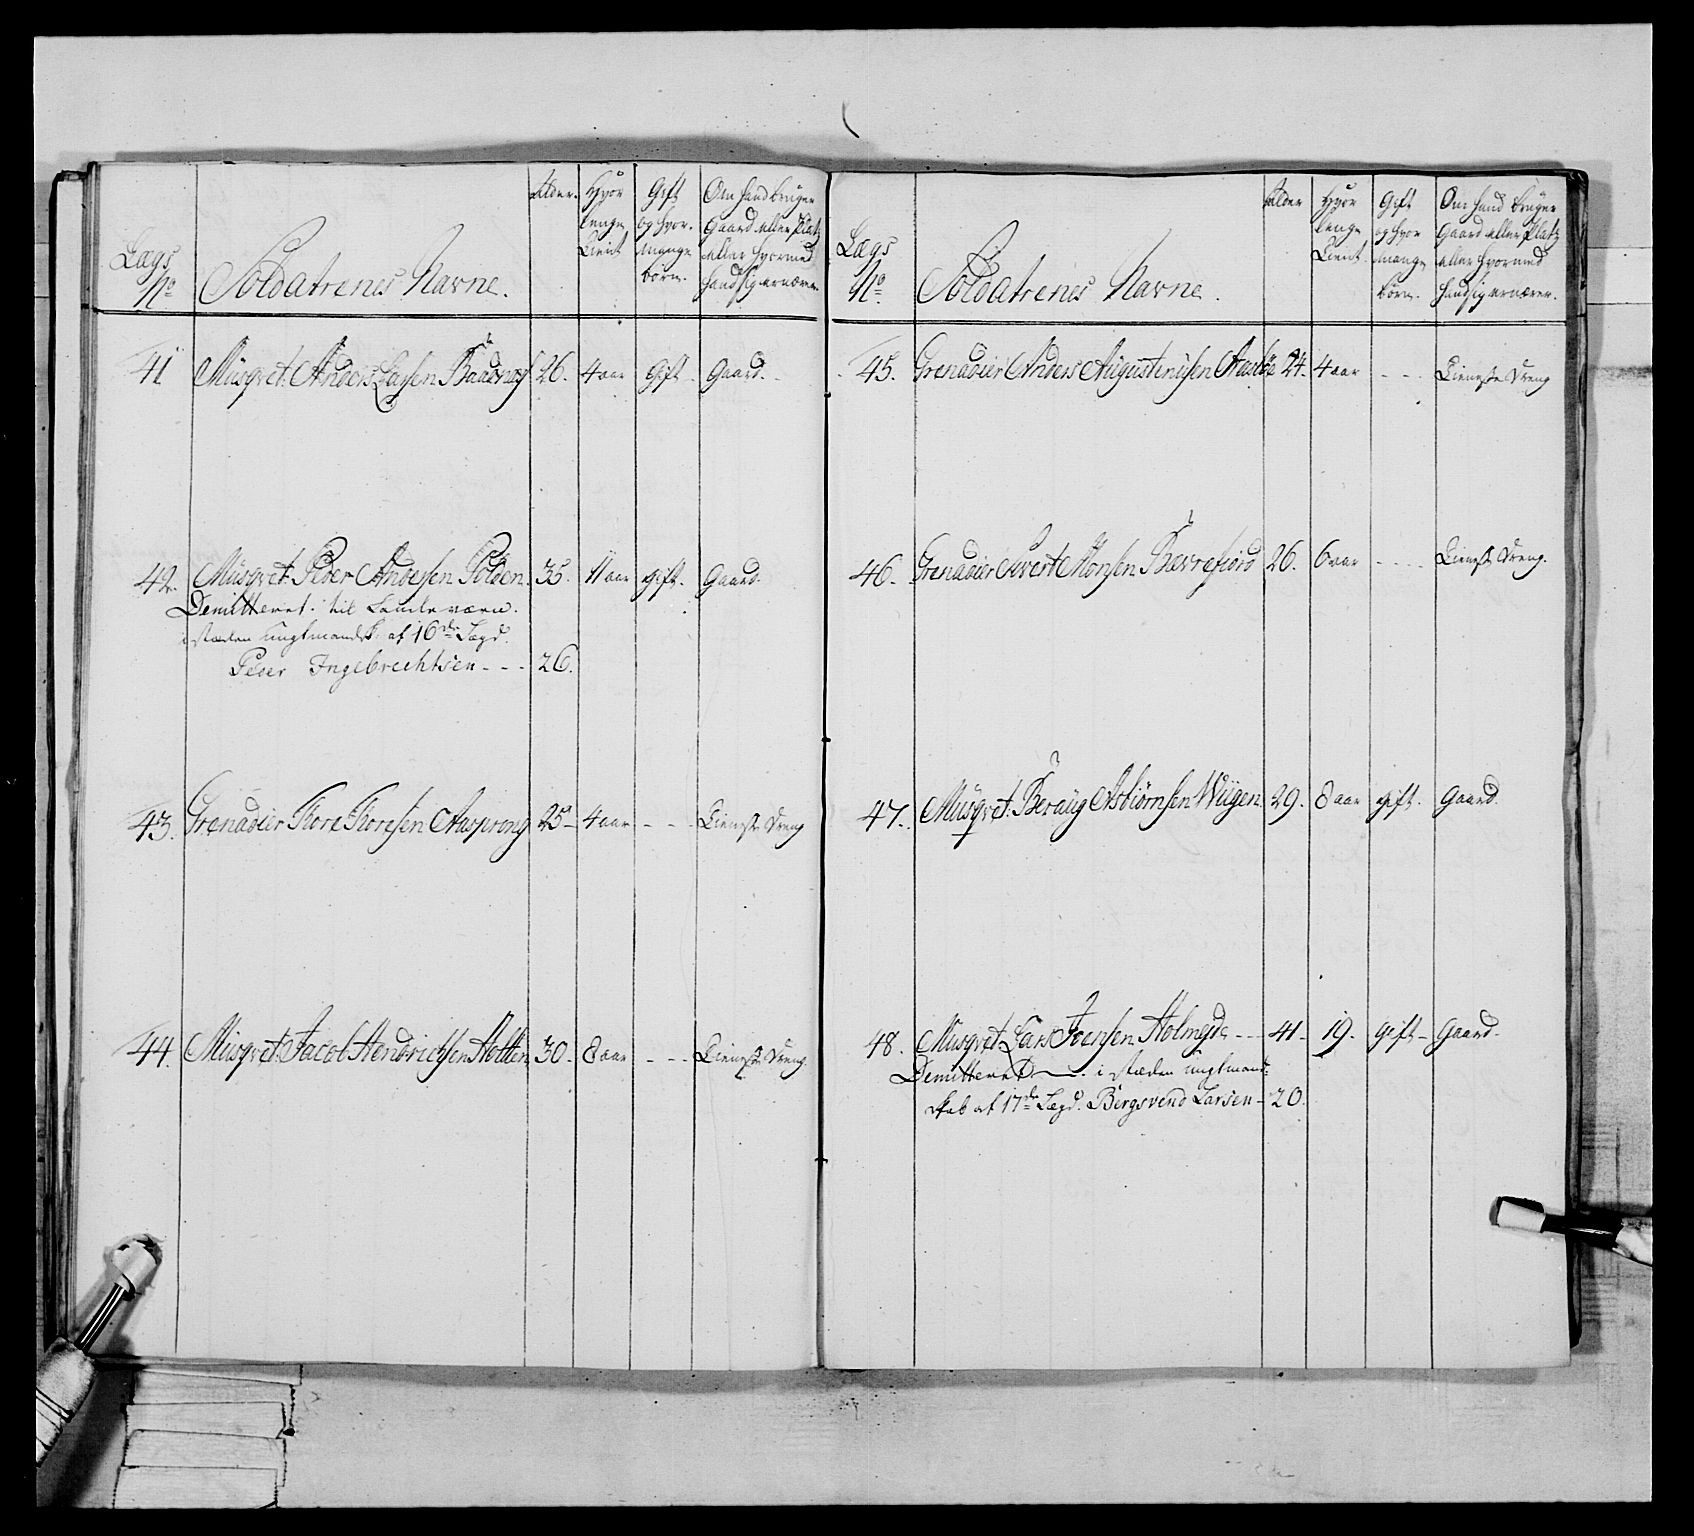 Lægs No
Soldatrenes Navne.
Alder.
Hvor lenge tient
Gift og hvor mange børn.
Om hand bruger Gaard eller Platz eller hvormed hand sig ernærer.
41 Musqret. Anders Larsen 26. 4 aar Gift - Gaard.
42. Musqret. Peder Andersen Solden 35. 11 aar gift. Gaard.
Demitteret til Landeværn.
i stæden ungtmandsk. af 16de Lægd.
Peder Ingebrechtsen - - - 26.
43. Grenadier Tore Toresen Aasprong 25 - 4 aar - - - Tieneste Dreng
44. Musqret. Jacob Hendrichsen Hollen 30 - 8 aar - - - Tieneste Dreng.
Lægs No
Soldatrenes Navne.
Alder
Hvor lenge tient.
Gift og hvor mange børn.
Om hand bruger Gaard eller Platz eller hvormed hand sig ernærer.
45. Grenadier Anders Augustinusen Aasbøe 24. 4 aar - - - Tieneste Dreng
46. Grenadier Sivert Monsen Bævrefiord 26. 6 aar - - - - Tieneste Dreng.
47. Musqret. Beraug Asbiørnsen Wiigen 29. 8 aar gift. Gaard.
48. Musqret. Lars Joensen Holmeide - - 41 - 19. gift - Gaard.
Demitteret i stæden ungtmand=
skab af 17de Lægd. Bergsvend Larsen - 20.